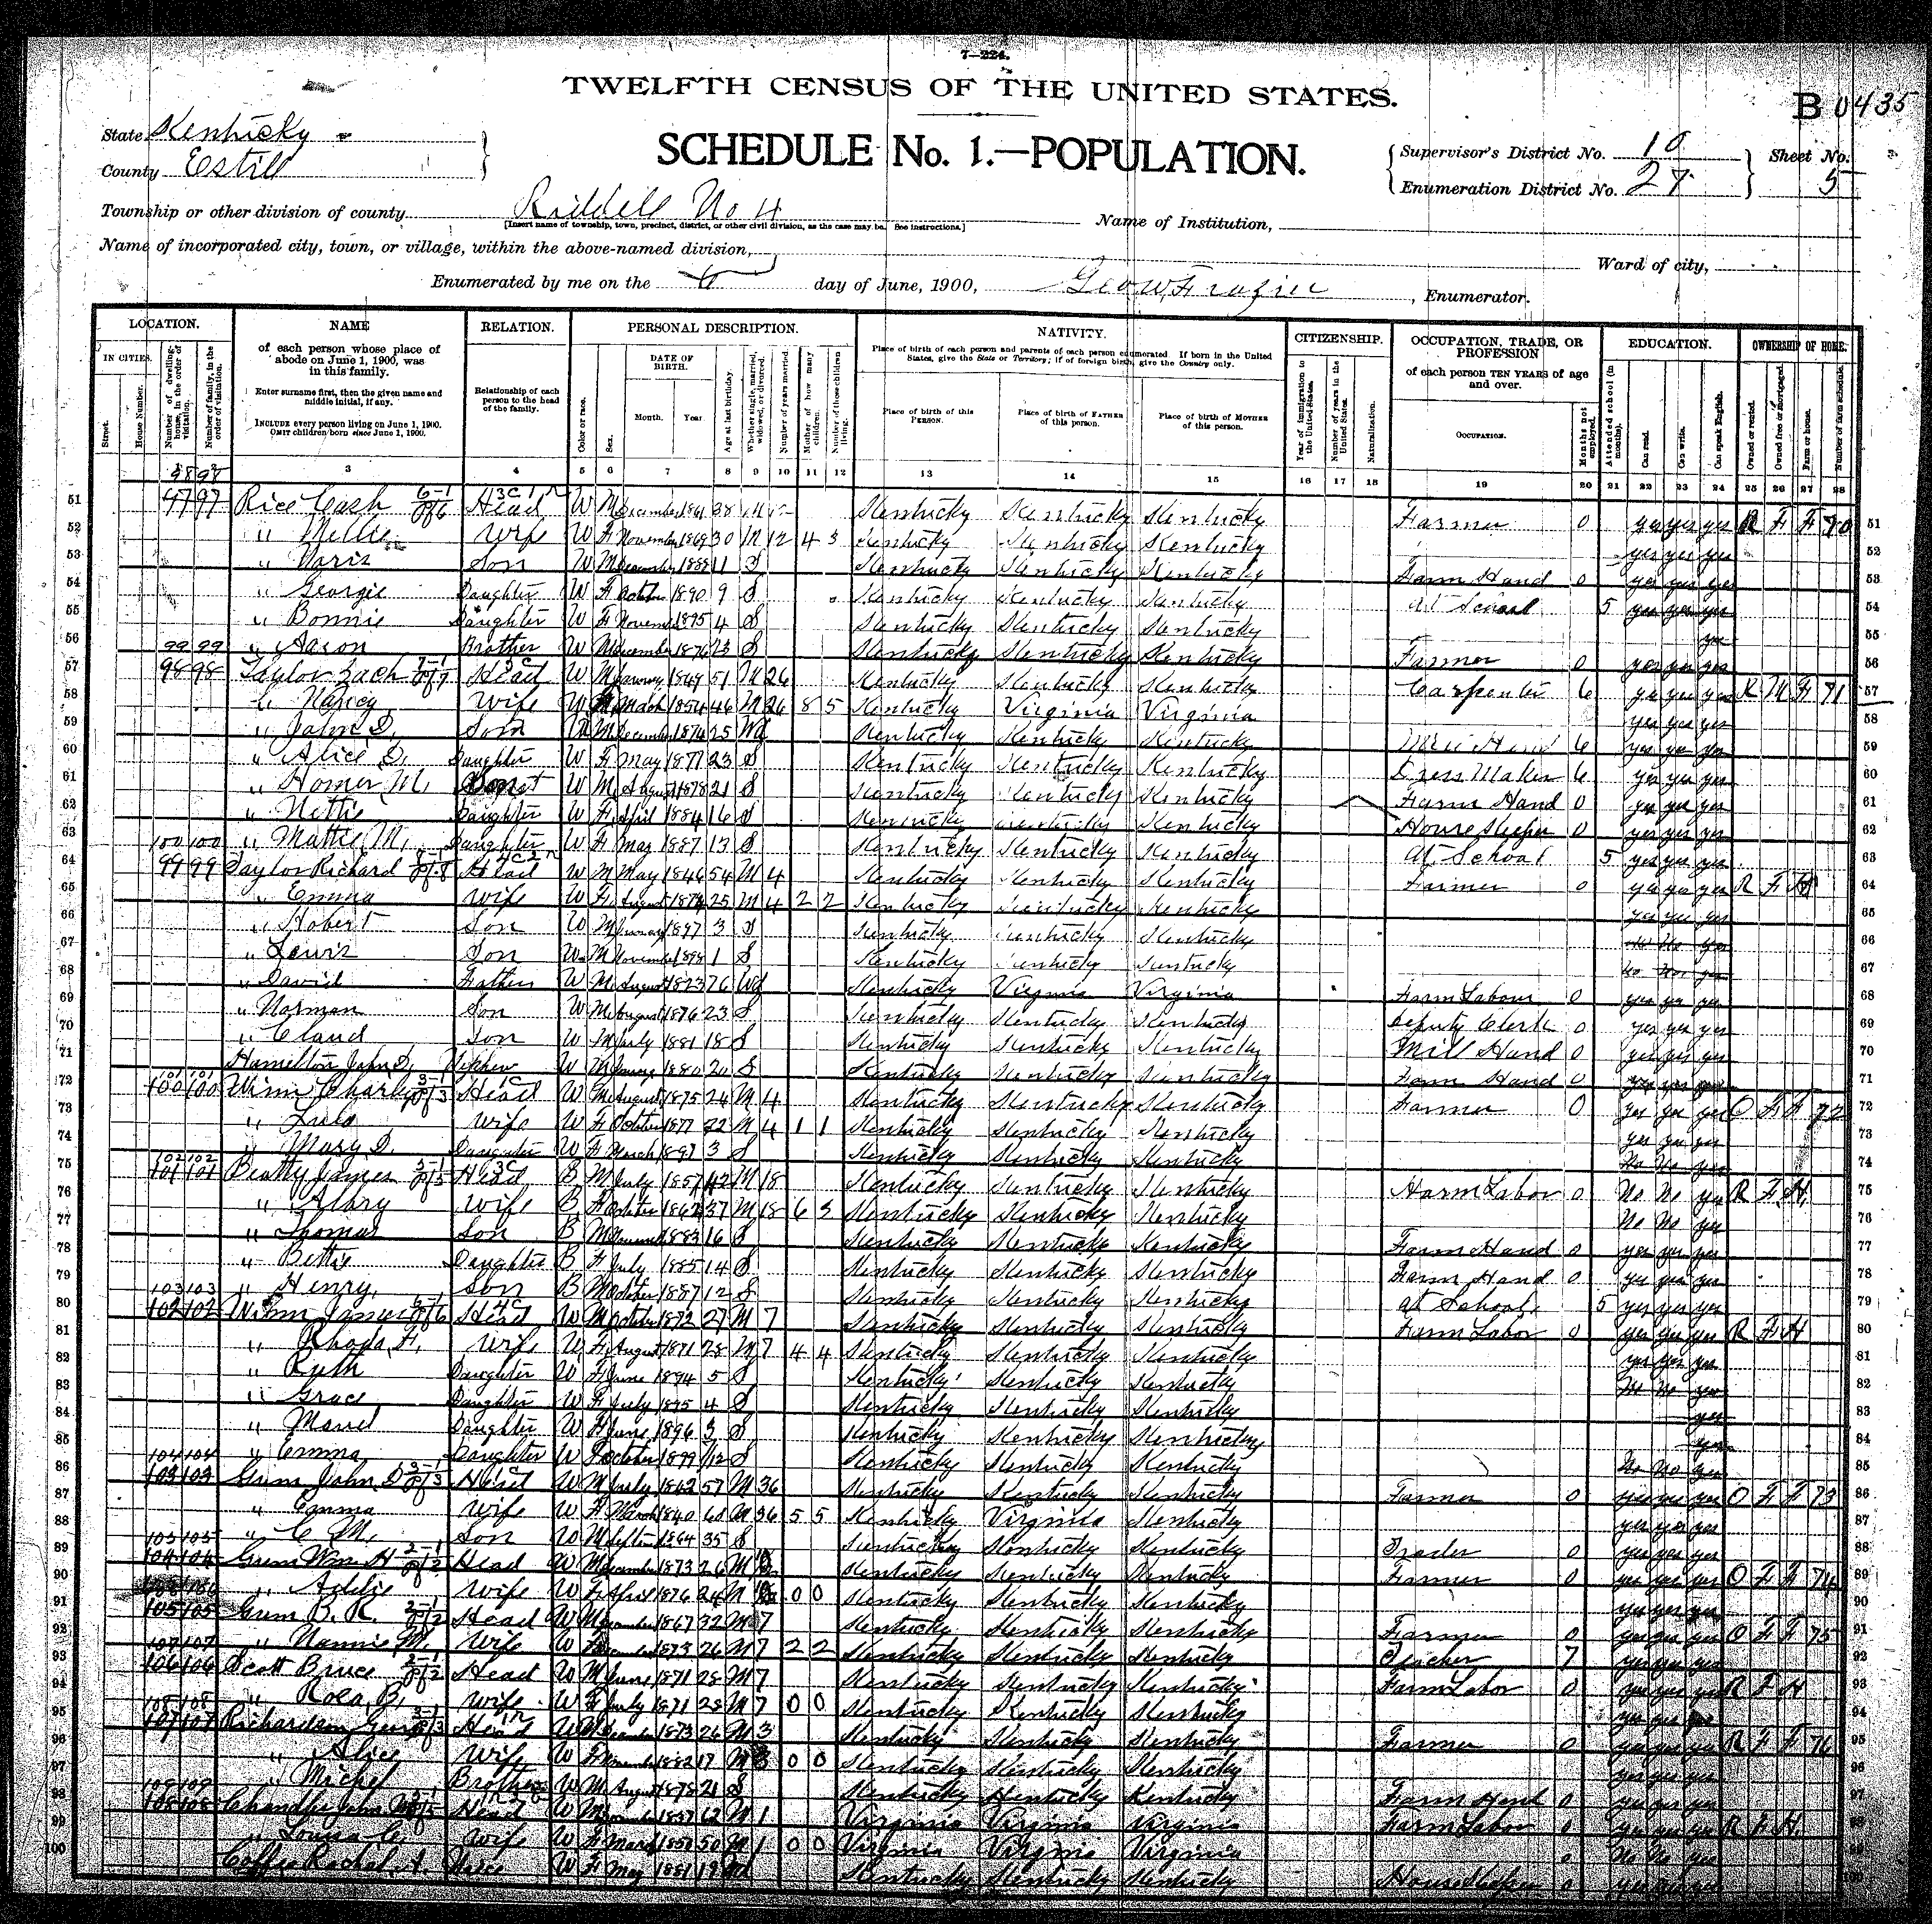 7—224.
TWELFTH CENSUS OF THE UNITED STATES.
B 0435
State Kentucky
SCHEDULE No. 1.—POPULATION.
County Estill
Supervisor's District No. 10
Sheet No. 5
Enumeration District No. 27
Township or other division of county Riddell No 4
[Insert name of township, town, precinct, district, or other civil division, as the case may be. See instructions.]
Name of Institution,
Name of incorporated city, town, or village, within the above-named division,
Ward of city,
Enumerated by me on the 6 day of June, 1900, Geo W Frazier, Enumerator.
LOCATION. NAME RELATION. PERSONAL DESCRIPTION. NATIVITY. CITIZENSHIP. OCCUPATION, TRADE, OR PROFESSION EDUCATION. OWNERSHIP OF HOME.
IN CITIES. Street. House Number. Number of dwelling-house, in the order of visitation. Number of family, in the order of visitation.
of each person whose place of abode on June 1, 1900, was in this family.
Enter surname first, then the given name and middle initial, if any.
INCLUDE every person living on June 1, 1900. OMIT children born since June 1, 1900.
Relationship of each person to the head of the family.
Color or race. Sex. DATE OF BIRTH. Month. Year. Age at last birthday. Whether single, married, widowed, or divorced. Number of years married. Mother of how many children. Number of these children living.
Place of birth of each person and parents of each person enumerated. If born in the United States, give the State or Territory; if of foreign birth, give the Country only.
Place of birth of this PERSON. Place of birth of FATHER of this person. Place of birth of MOTHER of this person.
Year of immigration to the United States. Number of years in the United States. Naturalization.
of each person TEN YEARS of age and over.
OCCUPATION. Months not employed.
Attended school (in months). Can read. Can write. Can speak English.
Owned or rented. Owned free or mortgaged. Farm or house. Number of farm schedule.
3 4 5 6 7 8 9 10 11 12 13 14 15 16 17 18 19 20 21 22 23 24 25 26 27 28
51 97 97 Rice Cash Head W M December 1861 38 M 12 Kentucky Kentucky Kentucky Farmer 0 yes yes yes R F F 70 51
52 " Mellie Wife W F November 1869 30 M 12 4 3 Kentucky Kentucky Kentucky yes yes yes 52
53 " Son W M December 1888 11 S Kentucky Kentucky Kentucky Farm Hand 0 yes yes yes 53
54 " Georgie Daughter W F October 1890 9 S Kentucky Kentucky Kentucky at School 5 yes yes yes 54
55 " Bonnie Daughter W F November 1895 4 S Kentucky Kentucky Kentucky yes 55
56 " Aaron Brother W M December 1876 23 S Kentucky Kentucky Kentucky Farmer 0 yes yes yes 56
57 98 98 Taylor Zach Head W M January 1849 51 M 26 Kentucky Kentucky Kentucky Carpenter 6 yes yes yes R M F 71 57
58 " Nancy Wife W F March 1854 46 M 26 8 5 Kentucky Virginia Virginia yes yes yes 58
59 " John D. Son W M December 1874 25 Wd Kentucky Kentucky Kentucky Mill Hand 6 yes yes yes 59
60 " Alice D. Daughter W F May 1877 23 S Kentucky Kentucky Kentucky Dress Maker 6 yes yes yes 60
61 " Homer M. Son W M August 1878 21 S Kentucky Kentucky Kentucky Farm Hand 0 yes yes yes 61
62 " Nettie Daughter W F April 1884 16 S Kentucky Kentucky Kentucky House Keeper 0 yes yes yes 62
63 " Mattie M. Daughter W F May 1887 13 S Kentucky Kentucky Kentucky at School 5 yes yes yes 63
64 99 99 Taylor Richard Head W M May 1846 54 M 4 Kentucky Kentucky Kentucky Farmer 0 yes yes yes R F H 64
65 " Emma Wife W F August 1874 25 M 4 2 2 Kentucky Kentucky Kentucky yes yes yes 65
66 " Hobert Son W M January 1897 3 S Kentucky Kentucky Kentucky No No yes 66
67 " Lewis Son W M November 1898 1 S Kentucky Kentucky Kentucky No No yes 67
68 " David Father W M August 1823 76 Wd Kentucky Virginia Virginia Farm Labour 0 yes yes yes 68
69 " Norman Son W M August 1876 23 S Kentucky Kentucky Kentucky Deputy Clerk 0 yes yes yes 69
70 " Claud Son W M July 1881 18 S Kentucky Kentucky Kentucky Mill Hand 0 yes yes yes 70
71 Hamilton John D. Nephew W M 1880 20 S Kentucky Kentucky Kentucky Farm Hand 0 yes yes yes 71
72 100 100 Winn Charley Head W M August 1875 24 M 4 Kentucky Kentucky Kentucky Farmer 0 yes yes yes O F F 72 72
73 " Lula Wife W F October 1877 22 M 4 1 1 Kentucky Kentucky Kentucky yes yes yes 73
74 " Mary D. Daughter W F March 1897 3 S Kentucky Kentucky Kentucky No No yes 74
75 101 101 Beatty James Head B M July 1857 42 M 18 Kentucky Kentucky Kentucky Farm Labor 0 No No yes R F H 75
76 " Mary Wife B F October 1862 37 M 18 6 3 Kentucky Kentucky Kentucky No No yes 76
77 " Thomas Son B M 1883 16 S Kentucky Kentucky Kentucky Farm Hand 0 yes yes yes 77
78 " Bettie Daughter B F July 1885 14 S Kentucky Kentucky Kentucky Farm Hand 0 yes yes yes 78
79 " Henry Son B M October 1887 12 S Kentucky Kentucky Kentucky at School 5 yes yes yes 79
80 102 102 Winn James Head W M October 1872 27 M 7 Kentucky Kentucky Kentucky Farm Labor 0 yes yes yes R F H 80
81 " Rhoda F. Wife W F August 1871 28 M 7 4 4 Kentucky Kentucky Kentucky yes yes yes 81
82 " Ruth Daughter W F June 1894 5 S Kentucky Kentucky Kentucky No No yes 82
83 " Grace Daughter W F July 1895 4 S Kentucky Kentucky Kentucky yes 83
84 " Daughter W F June 1896 3 S Kentucky Kentucky Kentucky yes 84
85 " Emma Daughter W October 1899 /12 S Kentucky Kentucky Kentucky No No yes 85
86 103 103 Gum John D Head W M July 57 M 36 Kentucky Kentucky Kentucky Farmer 0 yes yes yes O F F 73 86
87 " Emma Wife W F March 1840 60 M 36 5 5 Kentucky Virginia Kentucky yes yes yes 87
88 " C M. Son W M 1864 35 S Kentucky Kentucky Kentucky Trader 0 yes yes yes 88
89 104 104 Gum Wm H Head W M December 1873 26 M Kentucky Kentucky Kentucky Farmer 0 yes yes yes O F F 74 89
90 " Addie Wife W F April 1876 24 M 0 0 Kentucky Kentucky Kentucky yes yes yes 90
91 105 105 Gum B. R. Head W M 1867 32 M 7 Kentucky Kentucky Kentucky Farmer 0 yes yes yes O F F 75 91
92 " Nannie M. Wife W F 1873 26 M 7 2 2 Kentucky Kentucky Kentucky Teacher 7 yes yes yes 92
93 106 106 Scott Bruce Head W M June 1871 28 M 7 Kentucky Kentucky Kentucky Farm Labor 0 yes yes yes R F H 93
94 " Rosa B. Wife W F July 1871 28 M 7 0 0 Kentucky Kentucky Kentucky yes yes yes 94
95 107 107 Richardson George Head W M December 1873 26 M 3 Kentucky Kentucky Kentucky Farmer 0 yes yes yes R F F 76 95
96 " Alice Wife W F November 1882 17 M 3 0 0 Kentucky Kentucky Kentucky yes yes yes 96
97 " Michel Brother W M August 1878 21 S Kentucky Kentucky Kentucky Farm Hand 0 yes yes yes 97
98 108 108 Chandler John Head W M 1837 62 M 1 Virginia Virginia Virginia Farm Labor 0 yes yes yes R F H 98
99 " Louisa C. Wife W F March 1850 50 M 1 0 0 Virginia Virginia Virginia 0 No No yes 99
100 Coffee Rachel A. W F May 1881 19 Kentucky Kentucky Kentucky House Keeper 0 100